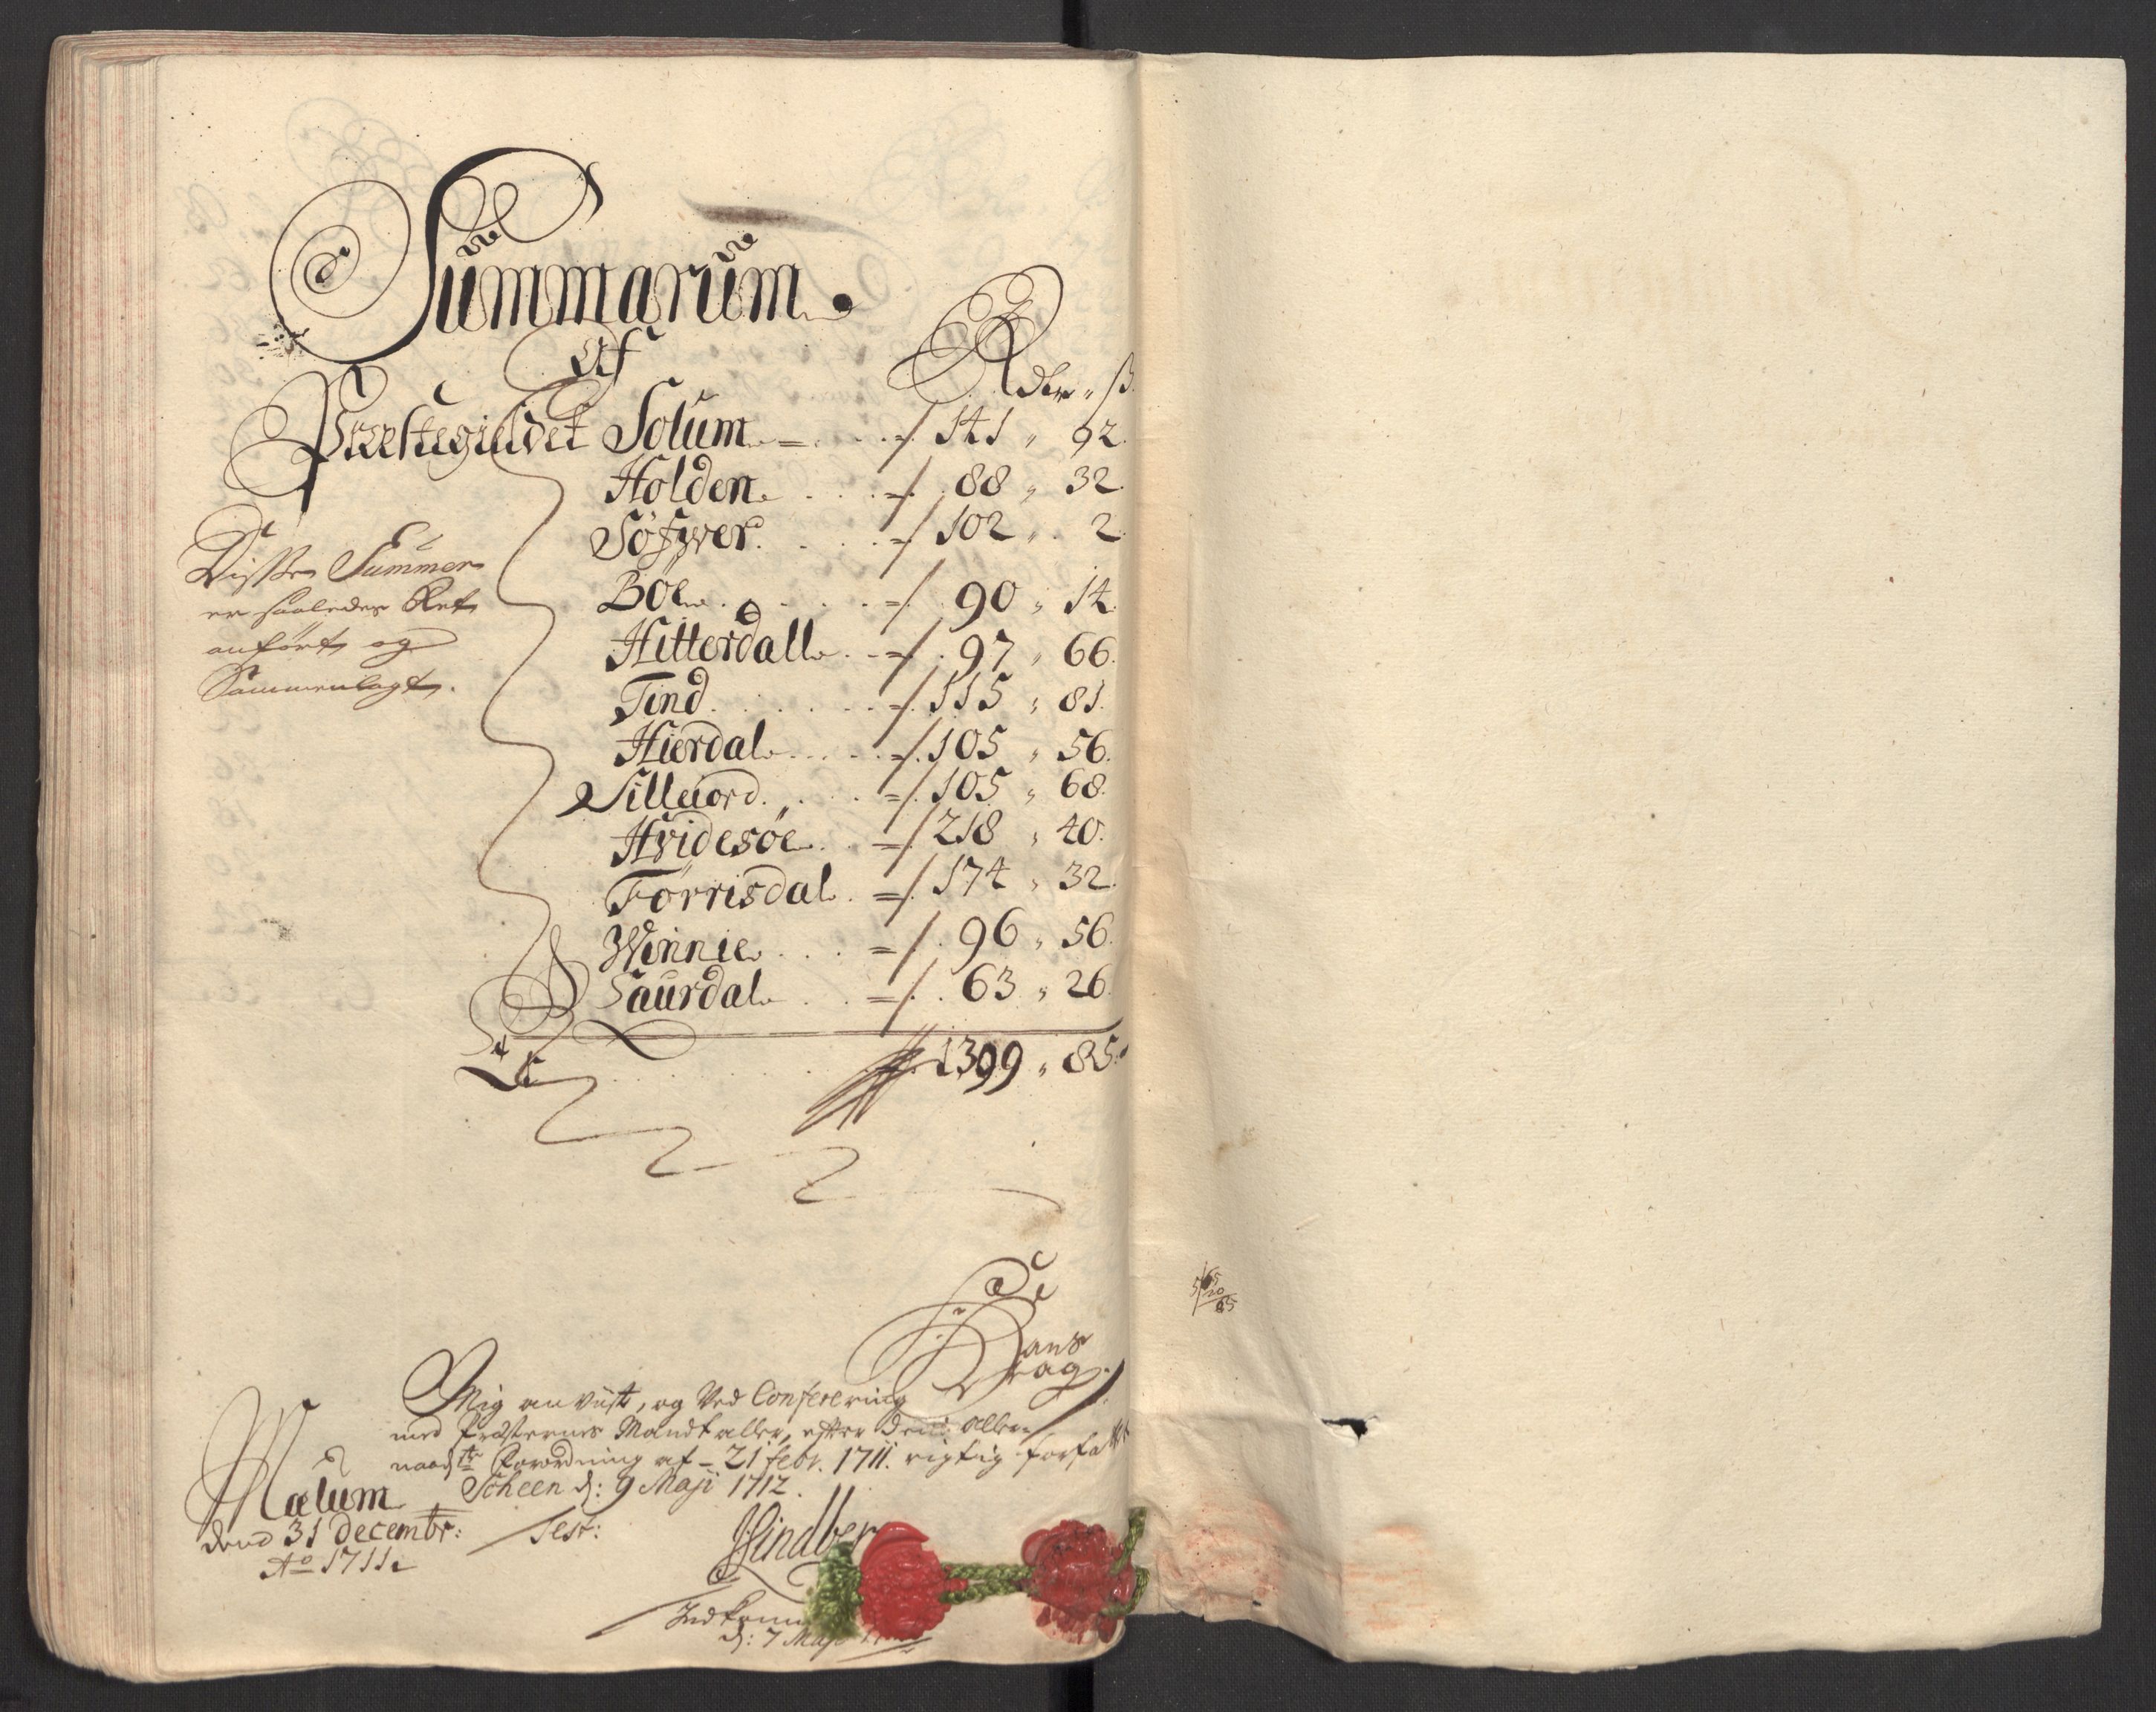 Summarum.
Af
Rdlr " ß
Præstegieldet Solum =/ 141 " 92.
Holden =/ 88 " 32.
Söfwer =/ 102 " 2
Böe =/ 90 " 14.
Hitterdall =/ 97 " 66.
Tind =/ 115 " 81.
Hierdal =/ 105 " 56.
Silleiord =/ 105 " 68.
Hvidesöe =/ 218 " 40.
Törrisdal =/ 174 " 32.
Winnie =/ 96 " 56.
Saurdal =/ 63 " 26.
1399 " 85.
Disse Summer
er saaledes Ret
anfört og
Sammenlagt.
Hans
Krag
Mig anviist, og Ved Conferering
med Præsternes Mandtaller, efter dend Aller
naadste Forordning af 21 febr. 1711. rigtig forfatt
Scheen d: 9 Maji 1712.
Test:
Mælum
dend 31 decembr:
Ao 1711
d: 7 Maji